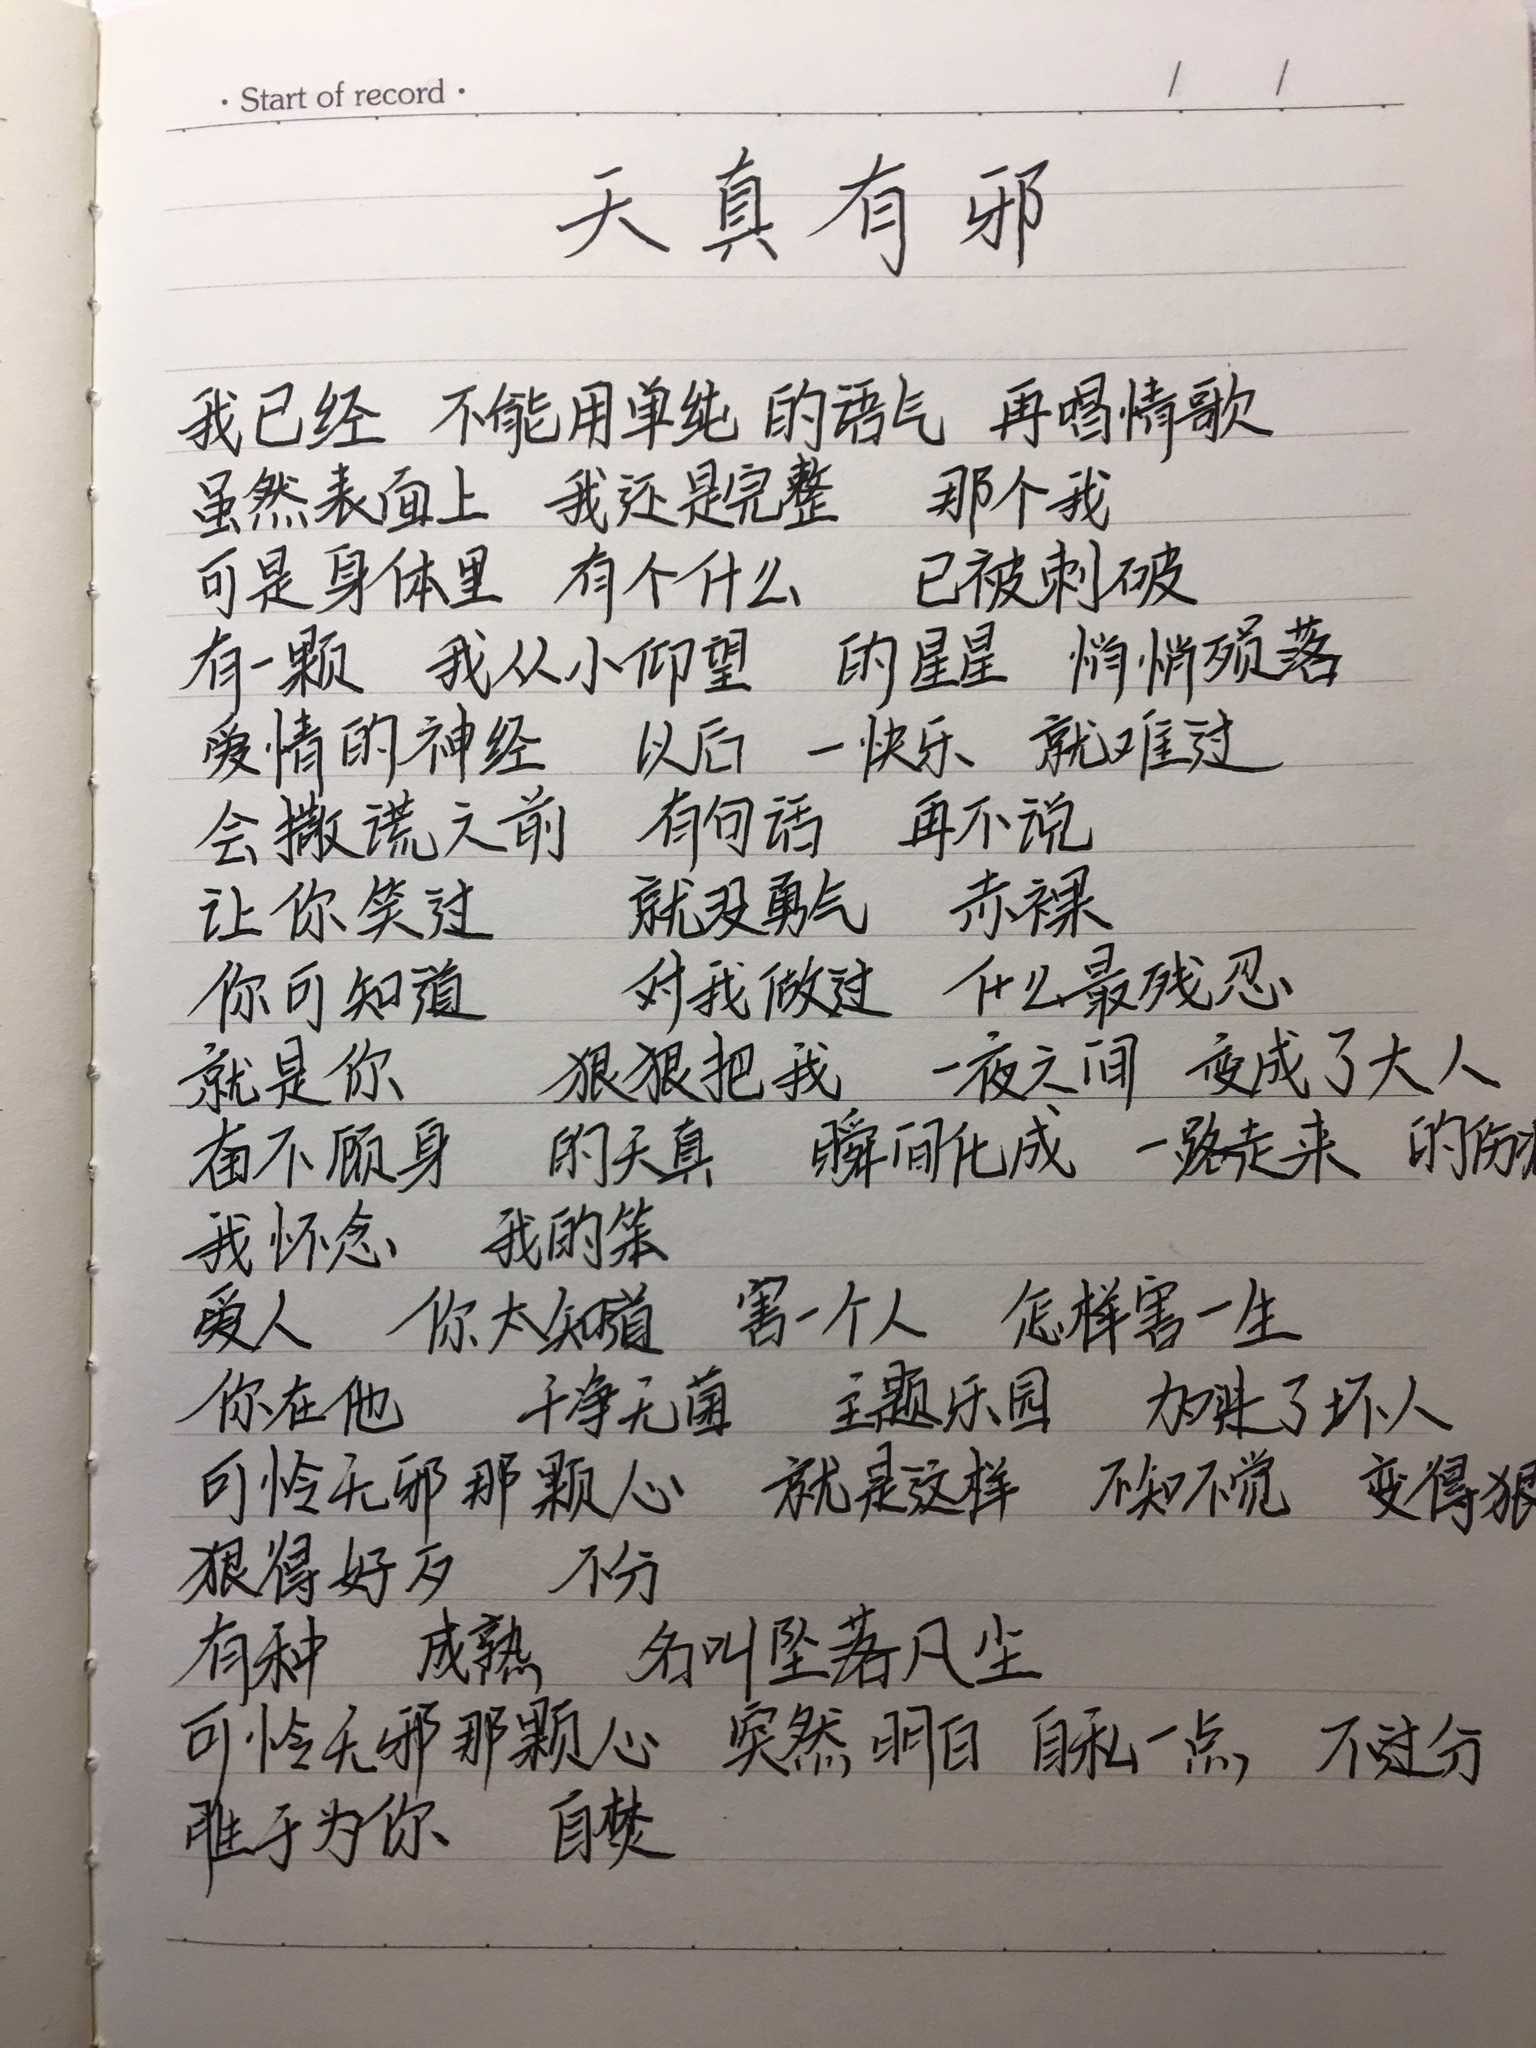 · Start of record ·
/ /
天真有邪
我已经 不能用单纯 的语气 再唱情歌
虽然表面上 我还是完整 那个我
可是身体里 有个什么 已被刺破
有一颗 我从小仰望 的星星 悄悄殒落
爱情的神经 以后 一快乐 就难过
会撒谎之前 有句话 再不说
让你笑过 就没勇气 赤裸
你可知道 对我做过 什么最残忍
就是你 狠狠把我 一夜之间 变成了大人
奋不顾身 的天真 瞬间化成 一路走来 的伤
我怀念 我的笨
爱人 你太知道 害一个人 怎样害一生
你在他 干净无菌 主题乐园 加进了坏人
可怜无邪那颗心 就是这样 不知不觉 变得狠
狠得好歹 不分
有种 成熟 名叫坠落凡尘
可怜无邪那颗心 突然明白 自私一点 不过分
胜于为你 自焚